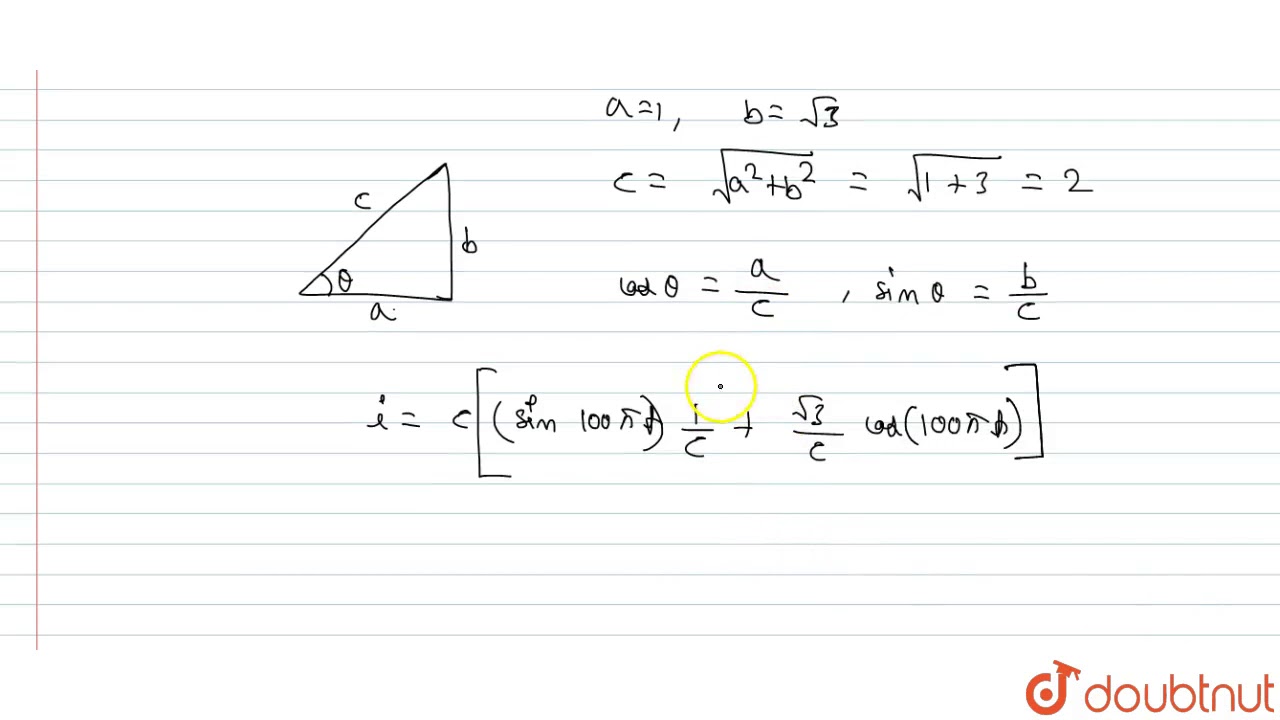 a=1, b= √3
c = √a²+b² = √1+3 = 2
c
b
θ
a
cos θ = a/c , sin θ = b/c
i = c[(sin 100πt) 1/c + √3/c cos(100πt)]
doubtnut